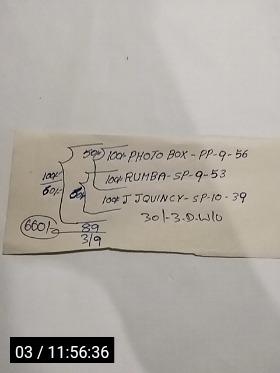 50/- 100/- PHOTO BOX - PP-9-56
100/- 60/- 100/- RUMBA-SP-9-53
100/- J JQUINCY-SP-10-39
30/-3.D.W/O
660/- 89
3/9
03 / 11:56:36